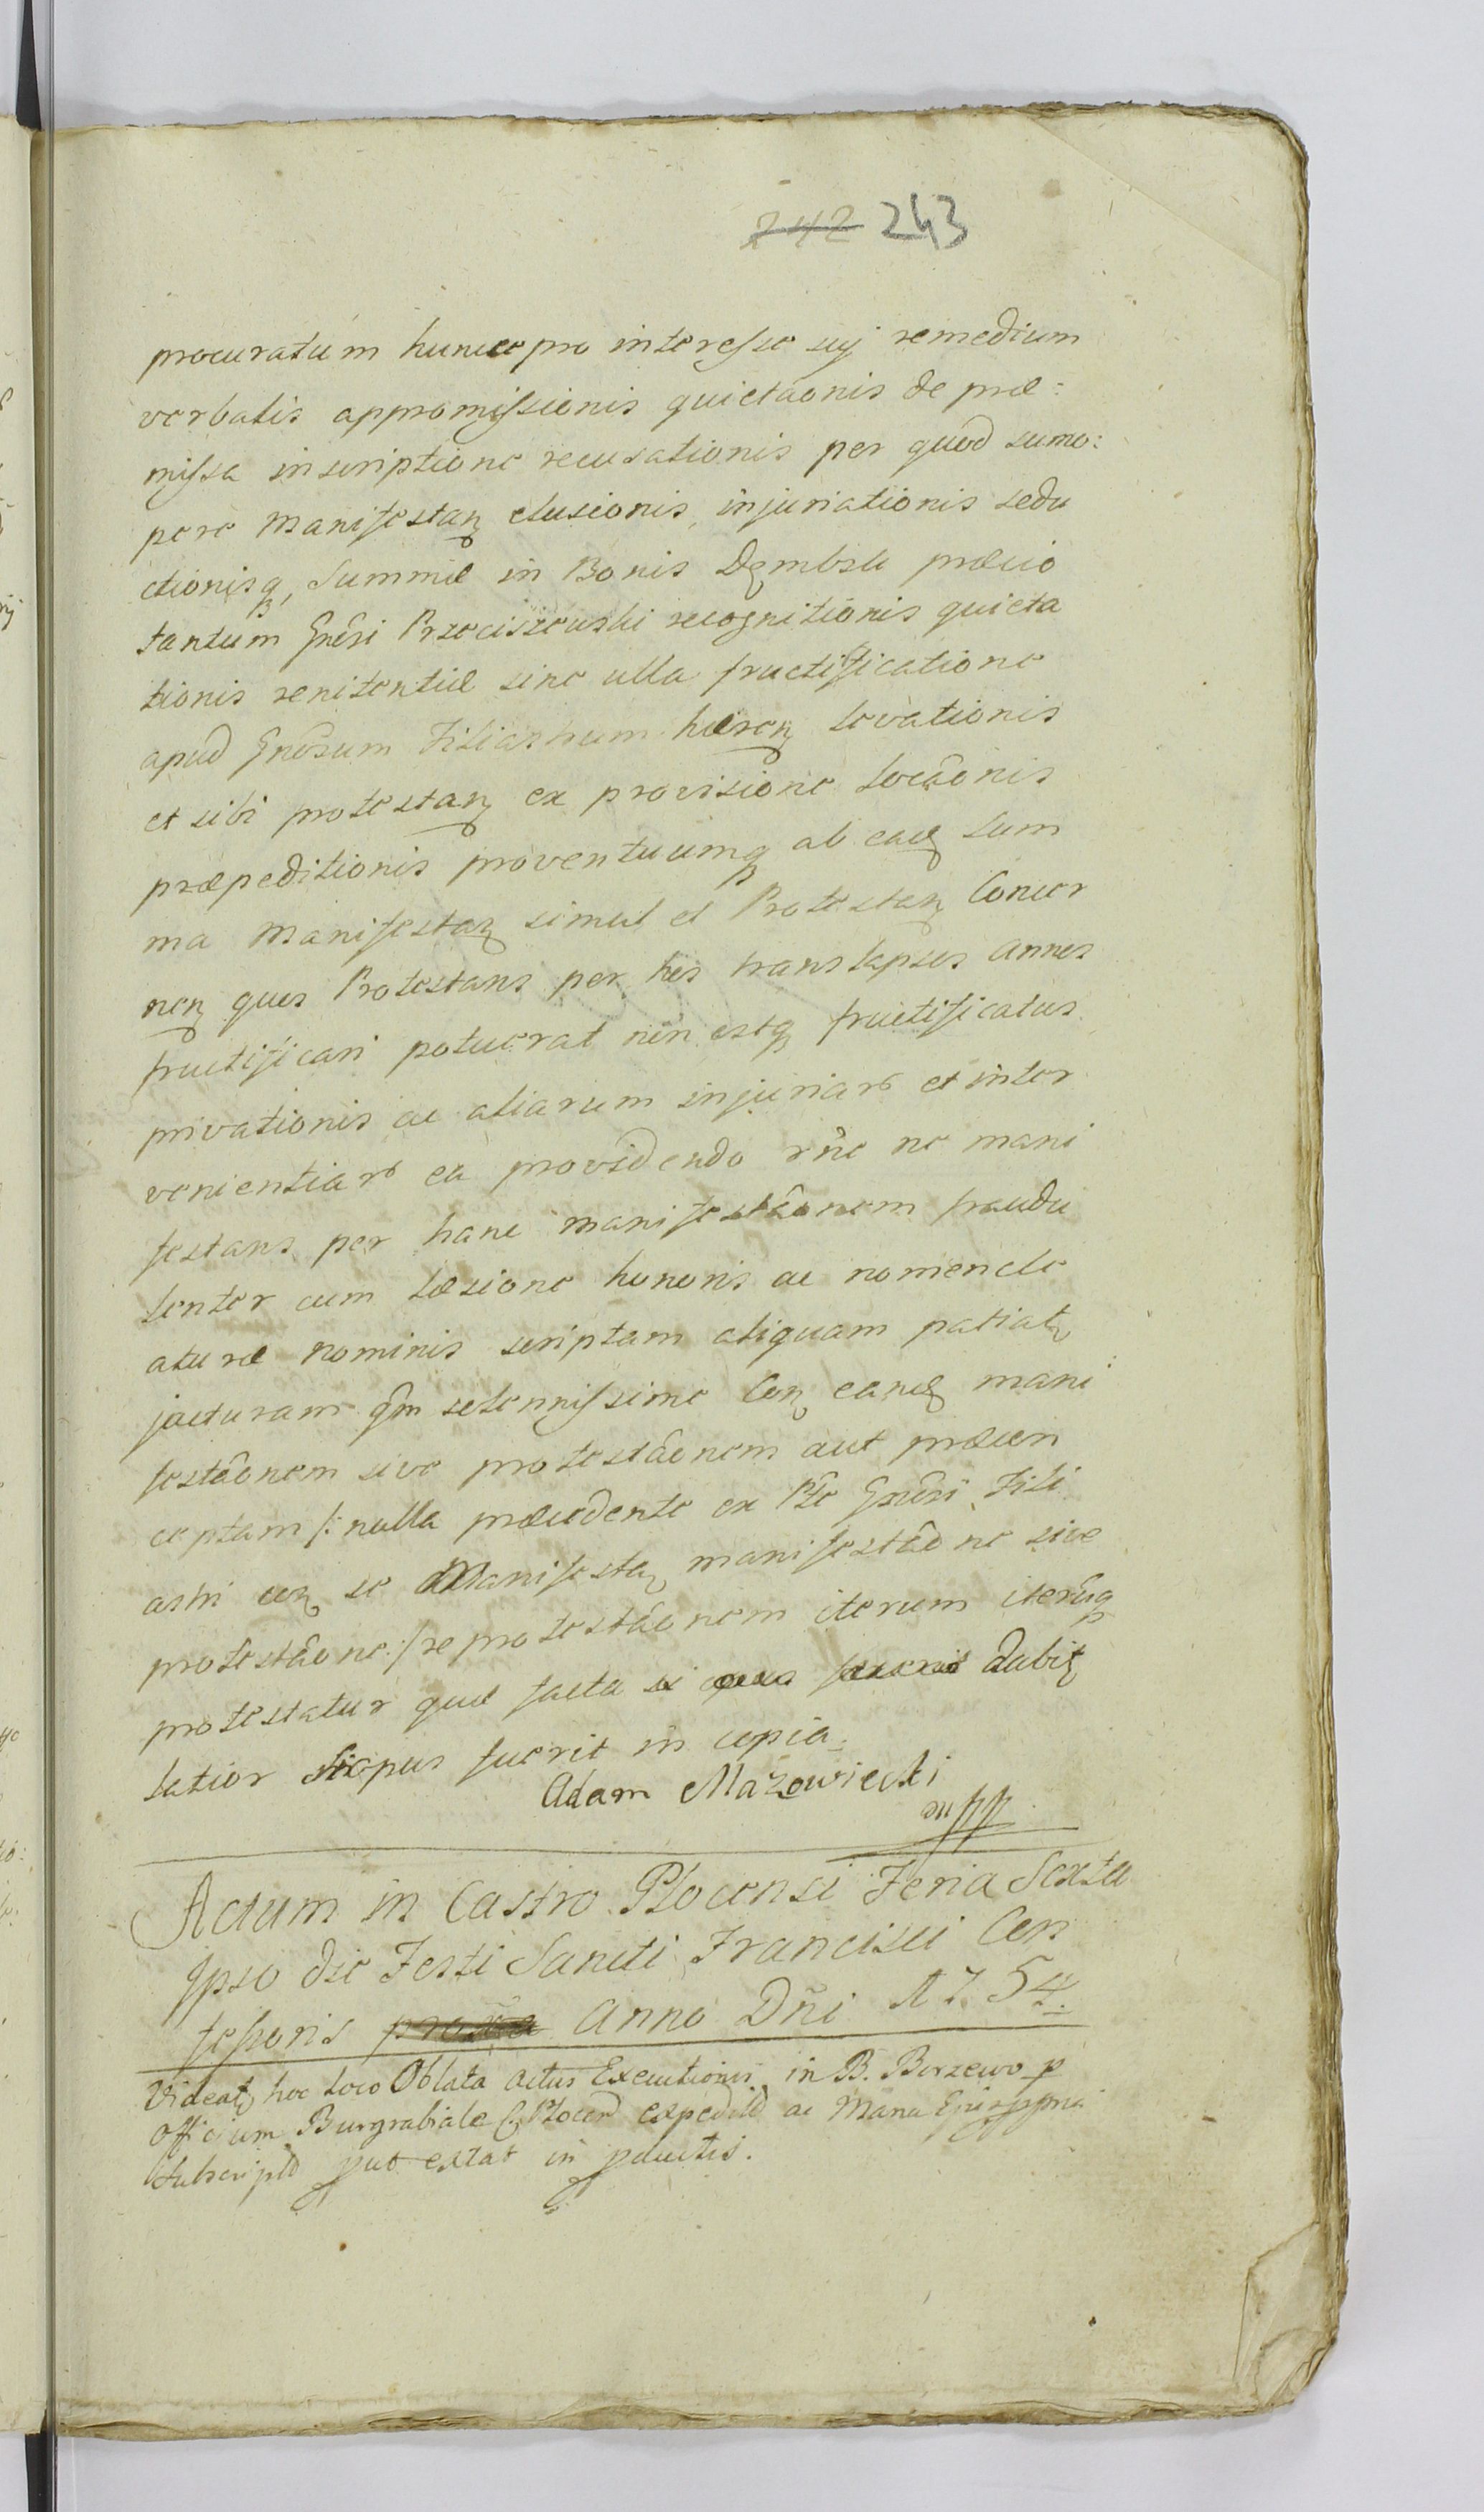 242 243
procuratum hunc pro interesse suj remedium
verbalis appromissionis quietãonis de præ:
missa inscriptione recusationis per quod sumo:
pere Manifestan elusionis, injuriationis sedu
ctionisq, Summæ in Bonis Dembsk præcio
tantum Gnêsi Przeciszewski recognitionis quieta
tionis renitentiæ sine ulla fructificatione
apud Gnõsum Filiashum hæren levationis
et sibi protestan ex provisione locâonis
præpeditionis proventuumq ab ead sum
ma Manifestan simul et Protestan Concer
nen ques Protestans per hos translapsos annos
fructificari potuerat non estq fructificatus
privationis ac aliarum injuriarũ et inter
venientiarũ ea providendo rñe ne mani
festans per hanc manifestâonem fraudu
lenter cum læsione honoris ac nomencle
aturæ nominis scriptam aliquam patiat
jacturam qm solennissime Con eand mani
festâonem sive protestâonem aut præcon
ceptam /: nulla præcedente ex Pte Gnêsi Fili
ashi con se Manifestan manifestâone sive
protestâone :/ reprotestâonem iterum iterũq
protestatur quæ facta si opus fuerit dabit
latior si opus fuerit in copia.
Adam Mazowiecki
mpp
Actum in Castro Plocensi Feria Sexta
Ipso die Festi Sancti Francisci Con
fessoris proxia Anno Dñi 1754.
Videat hoc loco Oblata actus Executionis in B. Borzewo p
Officium Burgrabiale C. Plocen expedit ac Manu Ejusdem
Subscript put extat in productis.